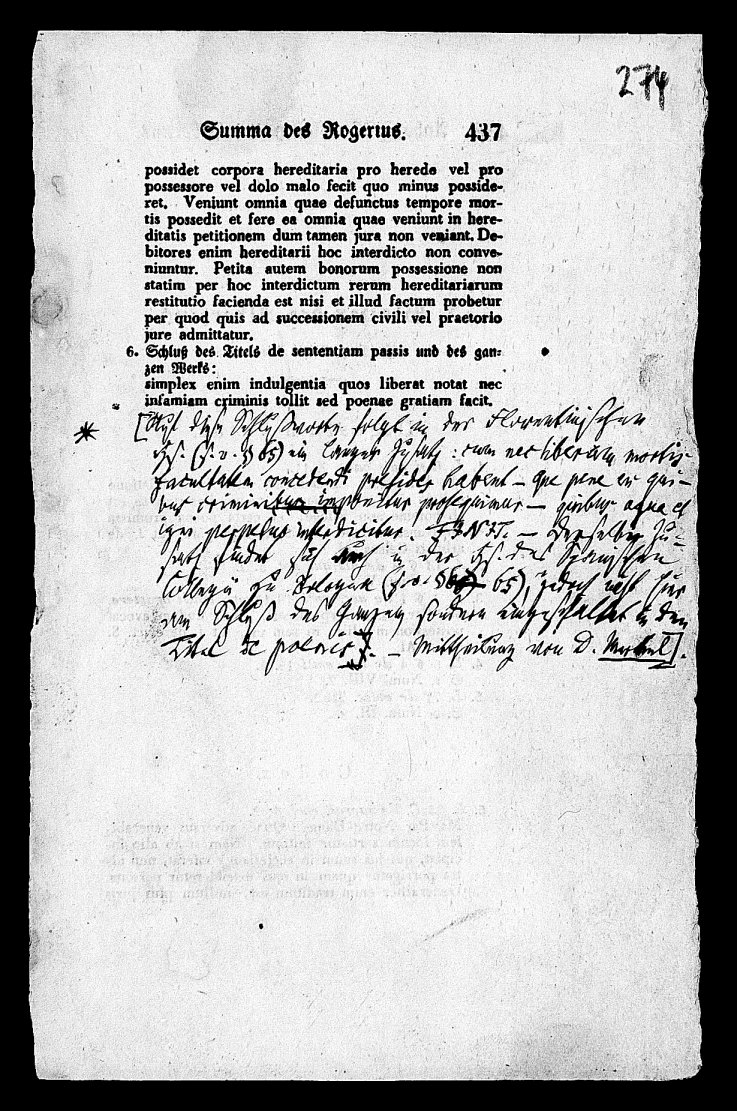 274
Summa des Rogerius. 437
possidet corpora hereditaria pro herede vel pro
possessore vel dolo malo fecit quo minus posside-
ret. Veniunt omnia quae defunctus tempore mor-
tis possedit et fere ea omnia quae veniunt in here-
ditatis petitionem dum tamen jura non veniant. De-
bitores enim hereditarii hoc interdicto non conve-
niuntur. Petita autem bonorum possessione non
statim per hoc interdictum rerum hereditariarum
restitutio facienda est nisi et illud factum probetur
per quod quis ad successionem civili vel praetorio
jure admittatur.
6. Schluß des Titels de sententiam passis und des gan-
zen Werks:
simplex enim indulgentia quos liberat notat nec
infamiam criminis tollit sed poenae gratiam facit.
* [Auf diese Schlußworte folgt in der Florentinischen
Hs. (s. o. § 65) ein langer Zusatz: cum nec liberam mortis
facultatem concedendi presides habent – que pene
criminibus prosequimur – quibus aqua et
igni perpetuo interdicitur. FINIT. – Derselbe Zu-
satz findet sich auch in der Hs. des Spanischen
Collegii zu Bologna (s. o. § 65), jedoch nicht
am Schluß des Ganzen sondern eingeschaltet in den
Titel de poenis]. – Mittheilung von D. Merkel].